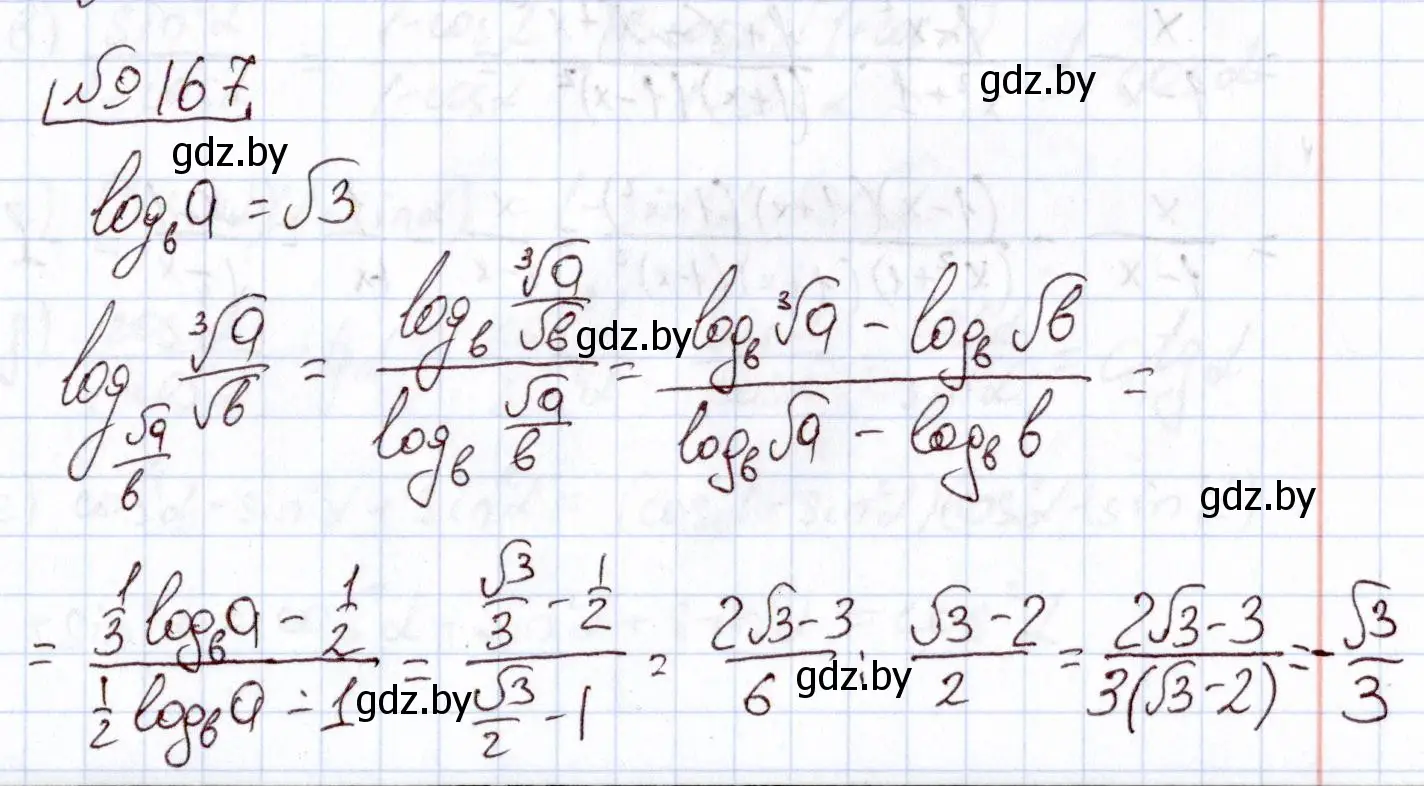 №167
gdz.by
gdz.by
log_в a = √3
log_{√a/в} ∛a/√в = (log_в ∛a/√в)/(log_в √a/в) = (log_в ∛a − log_в √в)/(log_в √a − log_в в) =
gdz.by
gdz.by
= (1/3 log_в a − 1/2)/(1/2 log_в a − 1) = (√3/3 − 1/2)/(√3/2 − 1) = (2√3−3)/6 : (√3−2)/2 = (2√3−3)/(3(√3−2)) = −√3/3
gdz.by
gdz.by